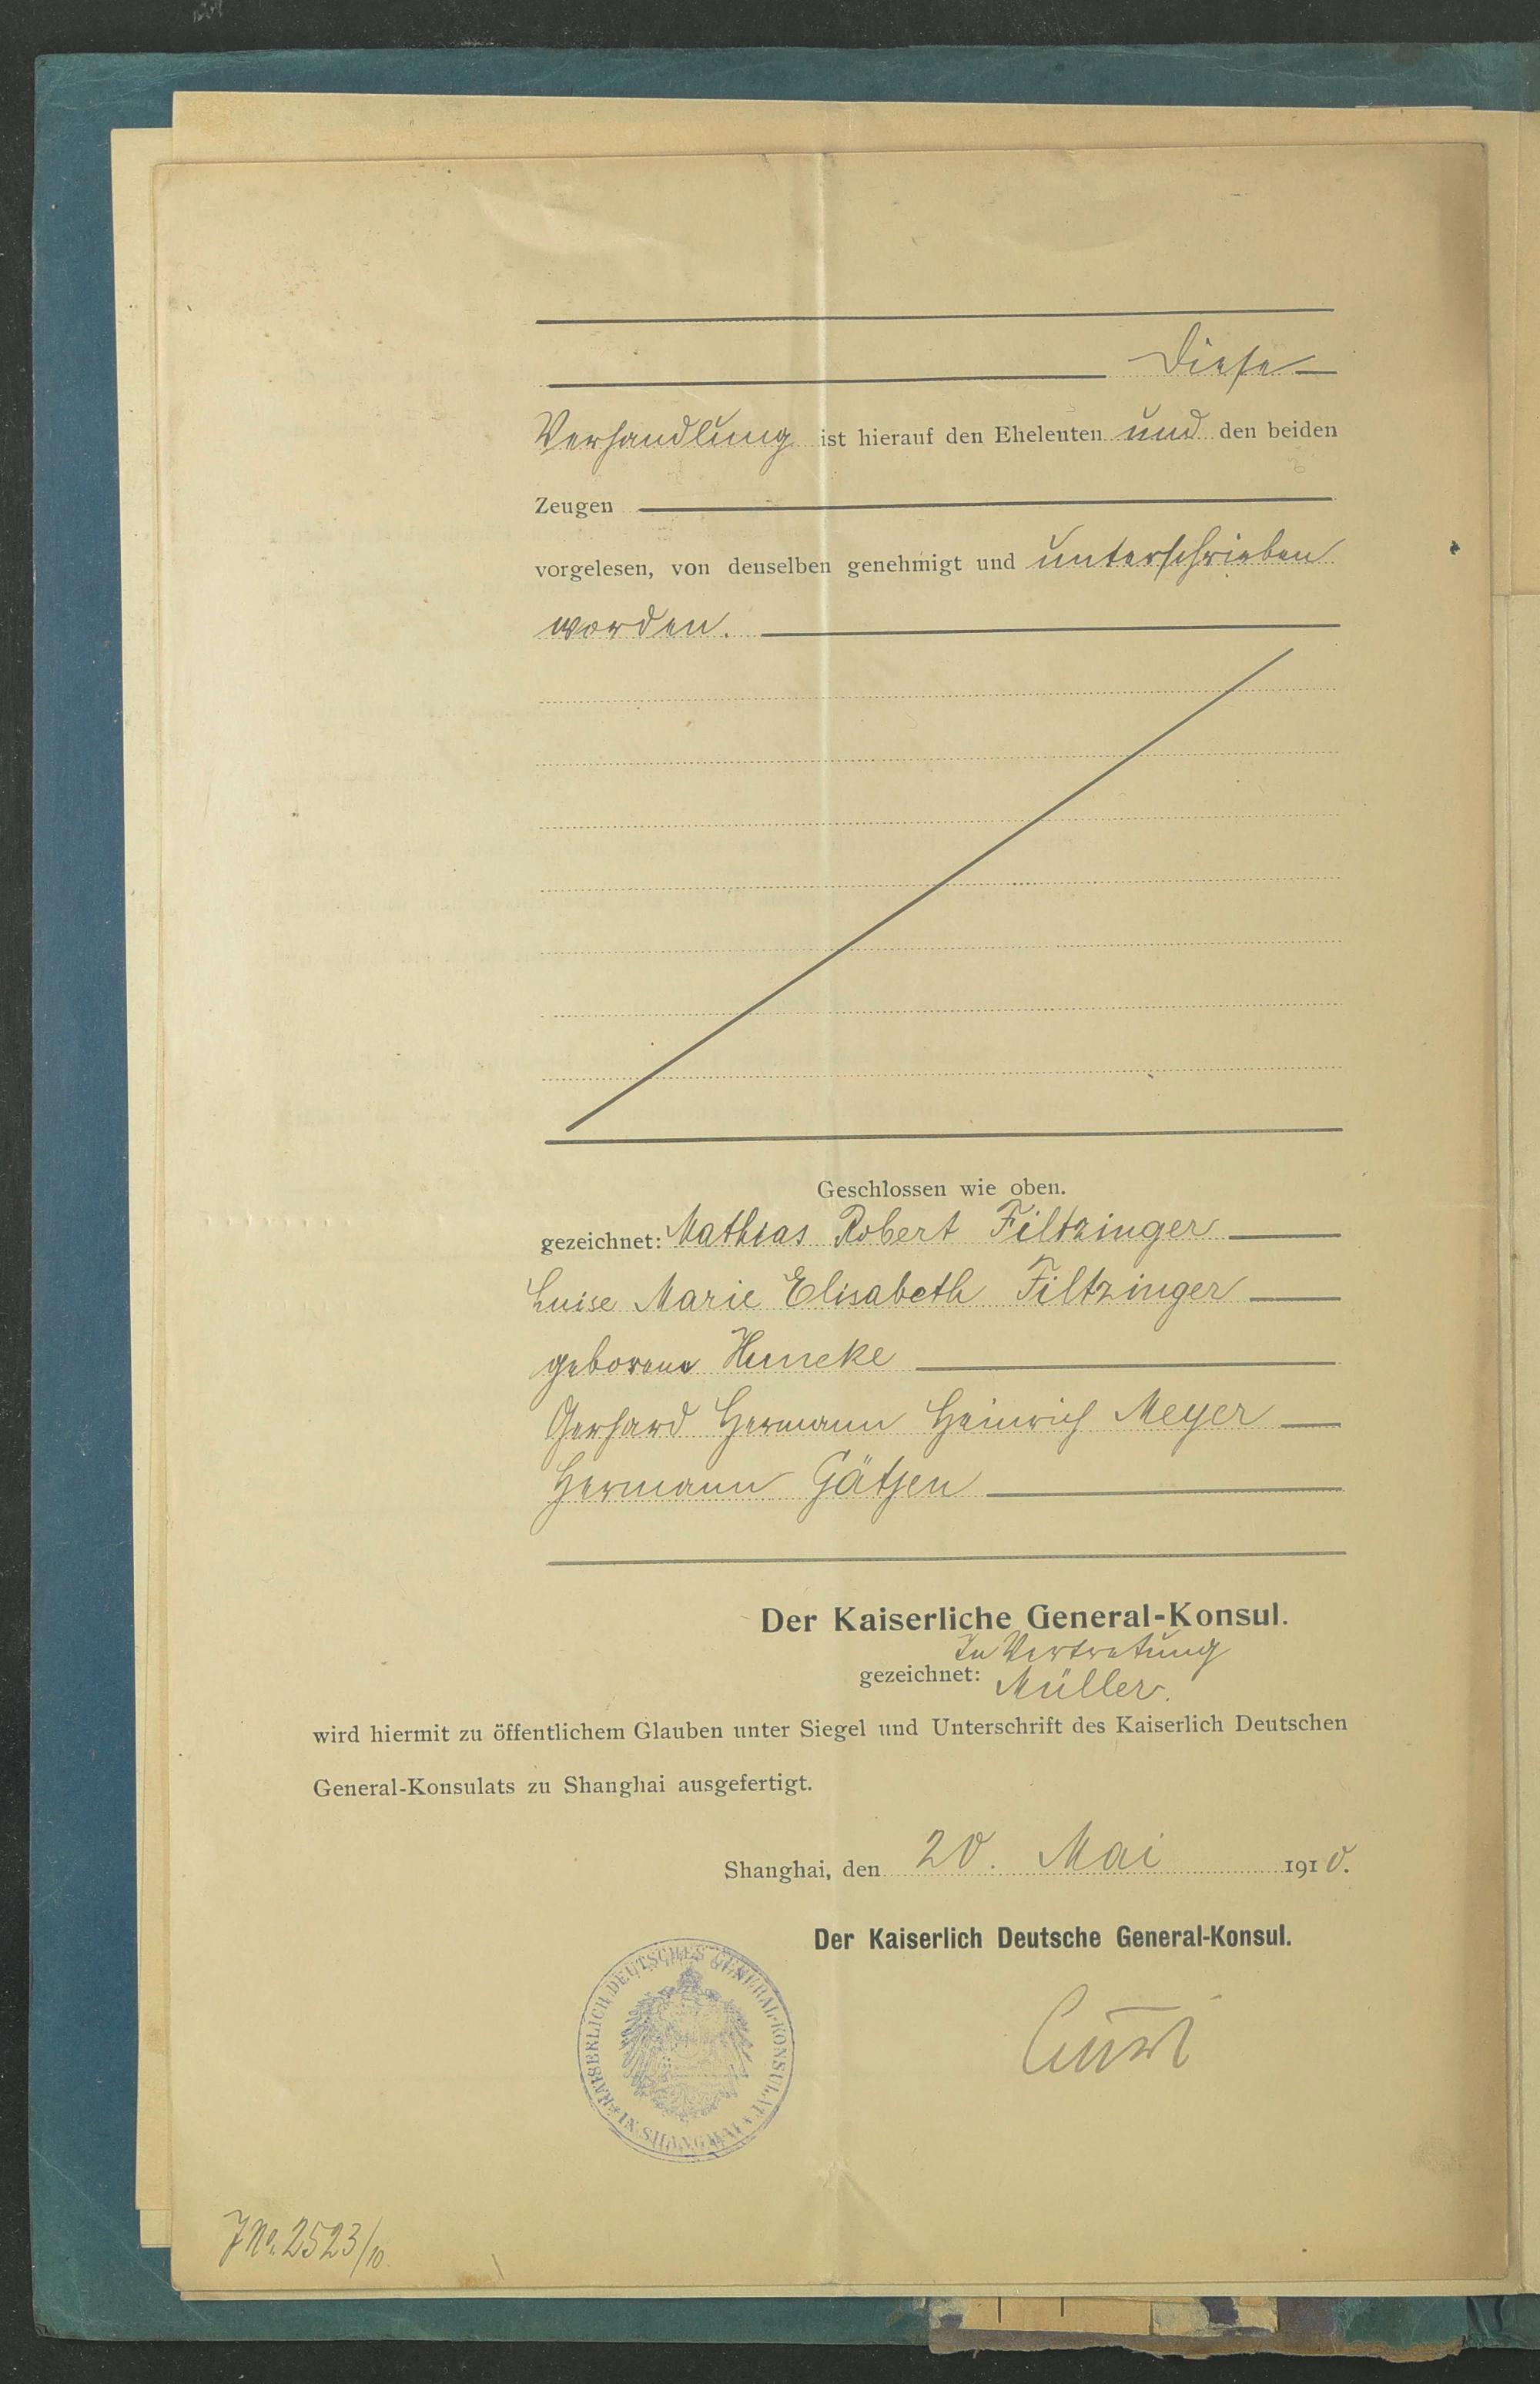 Diese
Verhandlung ist hierauf den Eheleuten und den beiden
Zeugen
vorgelesen, von denselben genehmigt und unterschrieben
worden.
Geschlossen wie oben.
gezeichnet: Mathias Robert Filtzinger
Luise Marie Elisabeth Filtzinger
geborene Huncke
Gerhard Hermann Heinrich Meyer
Hermann Gätjen
Der Kaiserliche General-Konsul.
In Vertretung
gezeichnet: Müller.
wird hiermit zu öffentlichem Glauben unter Siegel und Unterschrift des Kaiserlich Deutschen
General-Konsulats zu Shanghai ausgefertigt.
Shanghai, den 20. Mai 1910.
Der Kaiserlich Deutsche General-Konsul.
KAISERLICH DEUTSCHES GENERAL-KONSULAT
IN SHANGHAI
J No. 2523/10